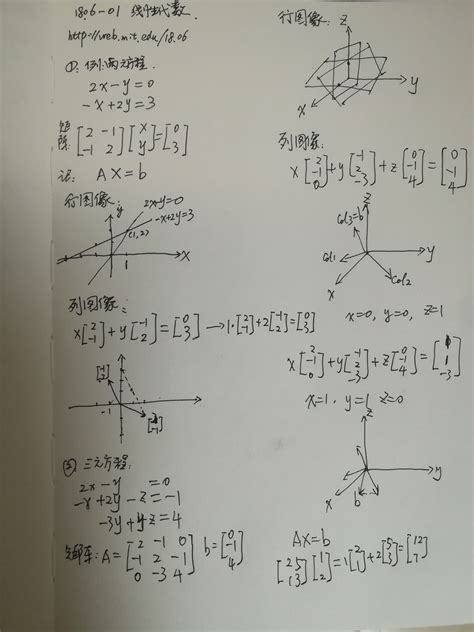 1806-01 线性代数.
http://web.mit.edu/18.06
①: 例:两元方程.
2x-y=0
-x+2y=3
矩阵 [2 -1; -1 2][x; y]=[0; 3]
记: AX=b
行图像:
y
2x-y=0
-x+2y=3
(1,2)
1
x
列图像:
x[2; -1]+y[-1; 2]=[0; 3] → 1·[2; -1]+2[-1; 2]=[0; 3]
[-1; 2]
-1
[2; -1]
② 三元方程:
2x-y =0
-x+2y-z=-1
-3y+4z=4
矩阵: A=[2 -1 0; -1 2 -1; 0 -3 4] b=[0; -1; 4]
行图像:
z
y
x
列图像:
x[2; -1; 0]+y[-1; 2; -3]+z[0; -1; 4]=[0; -1; 4]
z
Col3=b
Col1
y
Col2
x
x=0, y=0, z=1
x[2; -1; 0]+y[-1; 2; -3]+z[0; -1; 4]=[1; 1; -3]
x=1, y=1, z=0
z
y
x
b
AX=b
[2 5; 1 3][1; 2]=1[2; 1]+2[5; 3]=[12; 7]